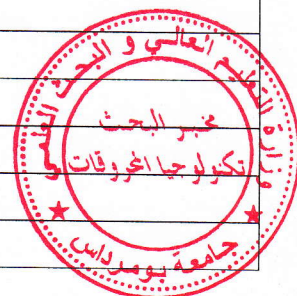 وزارة التعليم العالي و البحث العلمي
مخبر البحث
تكنولوجيا المحروقات
جامعة بومرداس